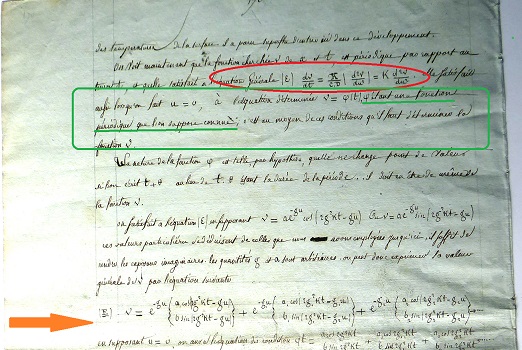 des températures de la surface et a pour superficie dans ce développement.
On voit maintenant que la fonction cherchée v de u et t, est périodique par rapport au
tems t, et qu'elle satisfait à l'équation générale |E| dv/dt = K/C.D | dv/dt | = K d²v/du² elle satisfait
aussi lorsqu'on fait u = 0, à l'équation déterminée v = φ(t), φ étant une fonction
périodique que l'on suppose connue ; c'est au moyen de ces conditions qu'il faut déterminer la
fonction v.
La nature de la fonction φ est telle, par hypothèse, qu'elle ne change point de valeur
si l'on écrit t + θ au lieu de t. θ étant la durée de la période. il doit en être de même de
la fonction v.
on satisfait à l'équation |E| en supposant v = a e^-gu cos(2g²Kt-gu) ou v = a e^-gu sin(2g²Kt-gu)
ces valeurs particulières se déduisent de celles que nous avons employées jusqu'ici, il suffit de
rendre les exposans imaginaires. les quantités g et a sont arbitraires on peut donc exprimer la valeur
générale de v par l'équation suivante
|E| v = e^-gu { a cos(2g²Kt-gu) b sin(2g²Kt-gu) } + e^-g₁u { a₁ cos(2g₁²Kt-g₁u) b₁ sin(2g₁²Kt-g₁u) } + e^-g₂u { a₂ cos(2g₂²Kt-g₂u) b₂ sin(2g₂²Kt-g₂u) }
en supposant u = 0, on aura l'équation de condition φt = a cos 2g²Kt b sin 2g²Kt + a₁ cos 2g₁²Kt b₁ sin 2g₁²Kt + a₂ cos 2g₂²Kt b₂ sin 2g₂²Kt